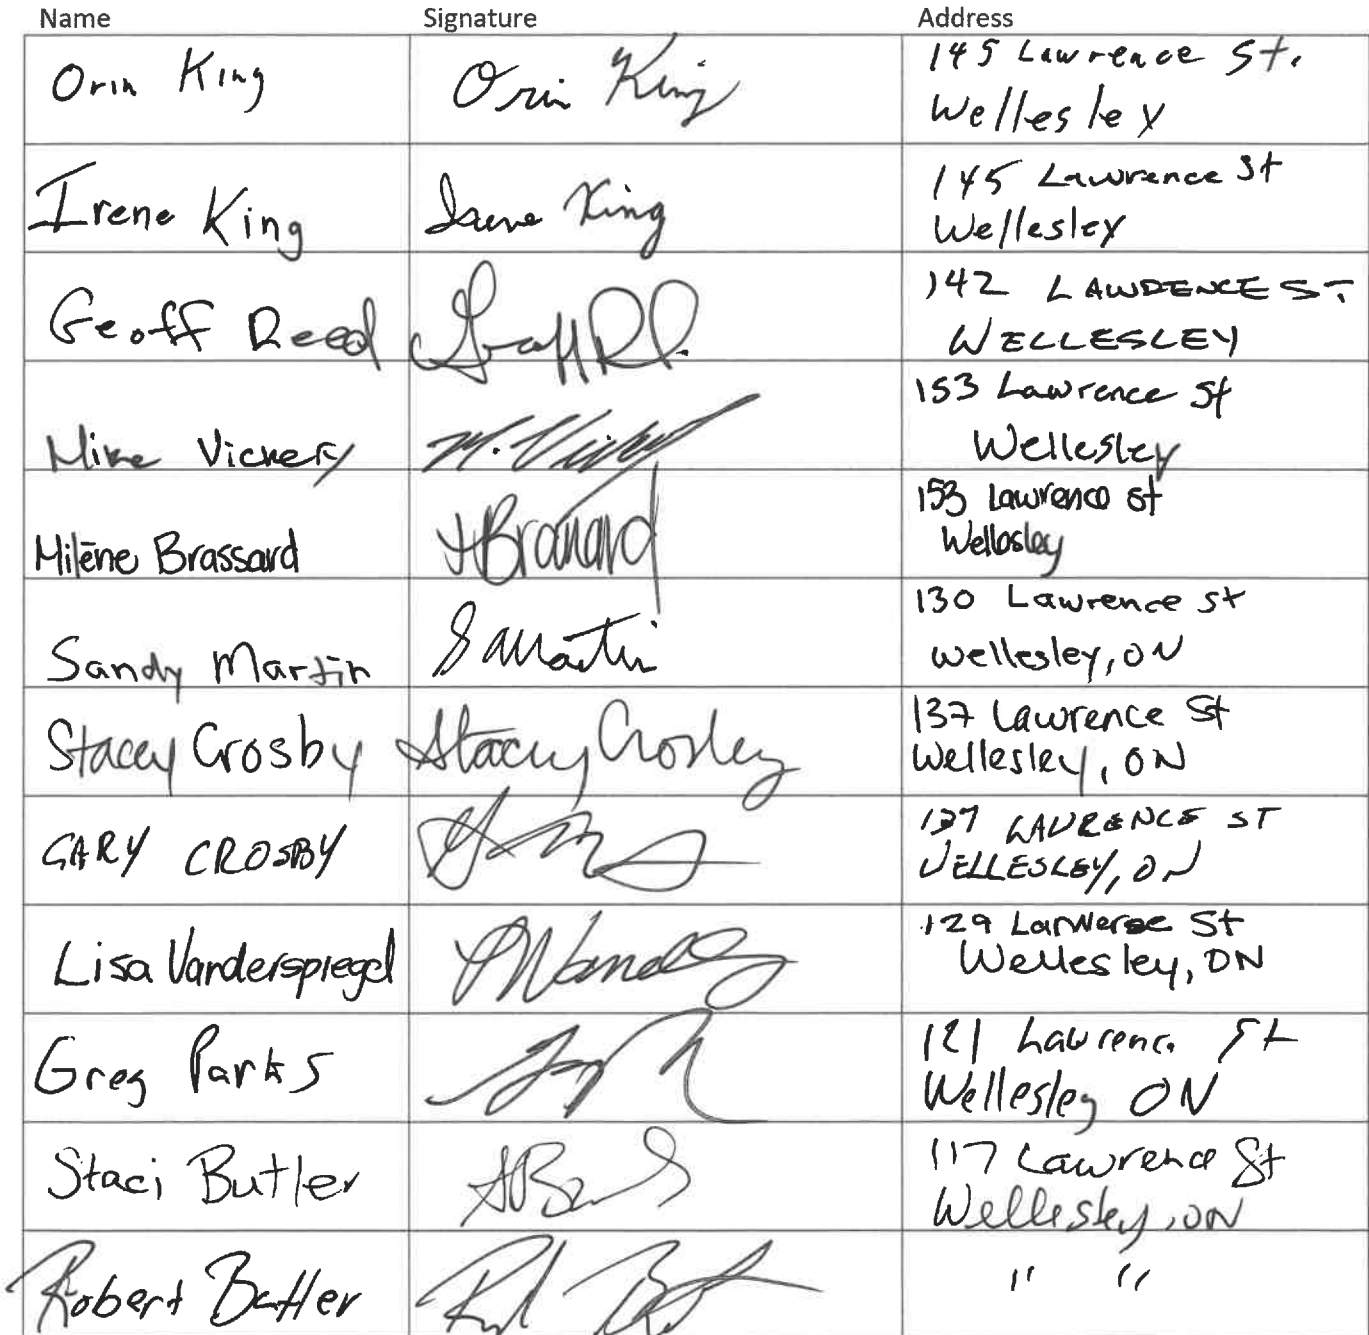 Name Signature Address
Orin King Orin King 145 Lawrence St.
Wellesley
Irene King Irene King 145 Lawrence St
Wellesley
Geoff Reed 142 LAWRENCE ST.
WELLESLEY
Mike Vickery M. 153 Lawrence St
Wellesley
Milène Brassard 153 Lawrence St
Wellesley
Sandy Martin S Martin 130 Lawrence St
Wellesley, ON
Stacey Crosby Stacey Crosby 137 Lawrence St
Wellesley, ON
GARY CROSBY 137 LAWRENCE ST
WELLESLEY, ON
Lisa Vanderspiegel 129 Larwerse St
Wellesley, ON
Greg Parks 121 Lawrence St
Wellesley ON
Staci Butler 117 Lawrence St
Wellesley, ON
Robert Butler " "